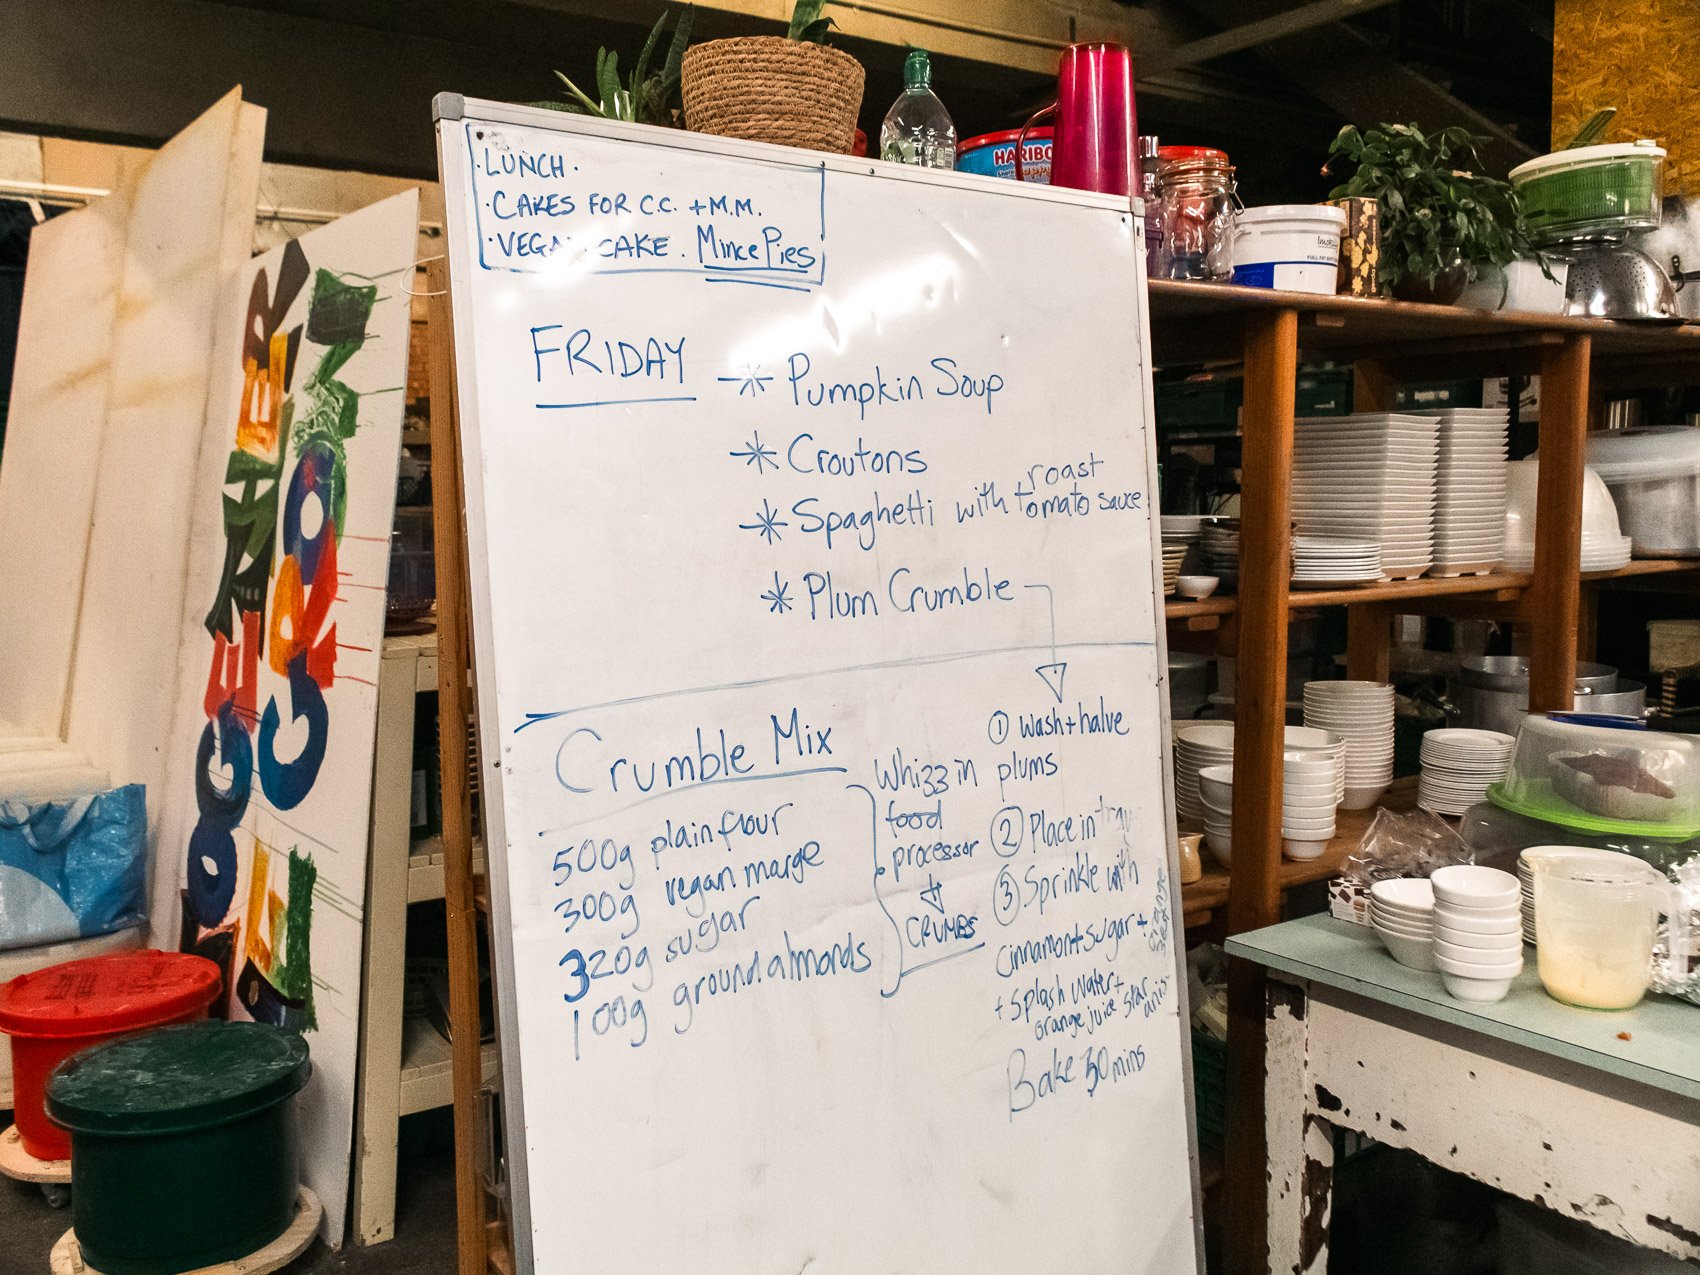 · LUNCH ·
· CAKES FOR C.C. + M.M.
· VEGAN CAKE . Mince Pies
FRIDAY
Pumpkin Soup
Croutons
Spaghetti with roast tomato sauce
Plum Crumble
Crumble Mix
500g plain flour
300g vegan marge
320g sugar
100g ground almonds
Whizz in
food
processor
CRUMBS
① Wash + halve
plums
② Place in tray
③ Sprinkle with
Cinnamon + sugar + orange
+ Splash water +
orange juice star anis
Bake 30 mins
HARIBO
TOGETHER